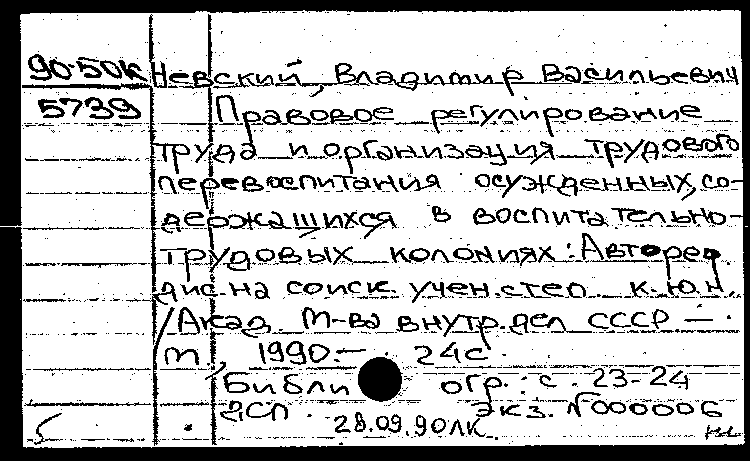 90-50К Невский, Владимир Васильевич
5739 Правовое регулирование
труда и организация трудового
перевоспитания осужденных, со-
держащихся в воспитательно-
трудовых колониях: Автореф
дис. на соиск. учен. степ. к.ю.н.
/Акад. М-ва внутр. дел СССР. —
М., 1990. — 24с.
Библиогр.: с. 23-24
ДСП. экз. №000006
28.09.90ЛК.